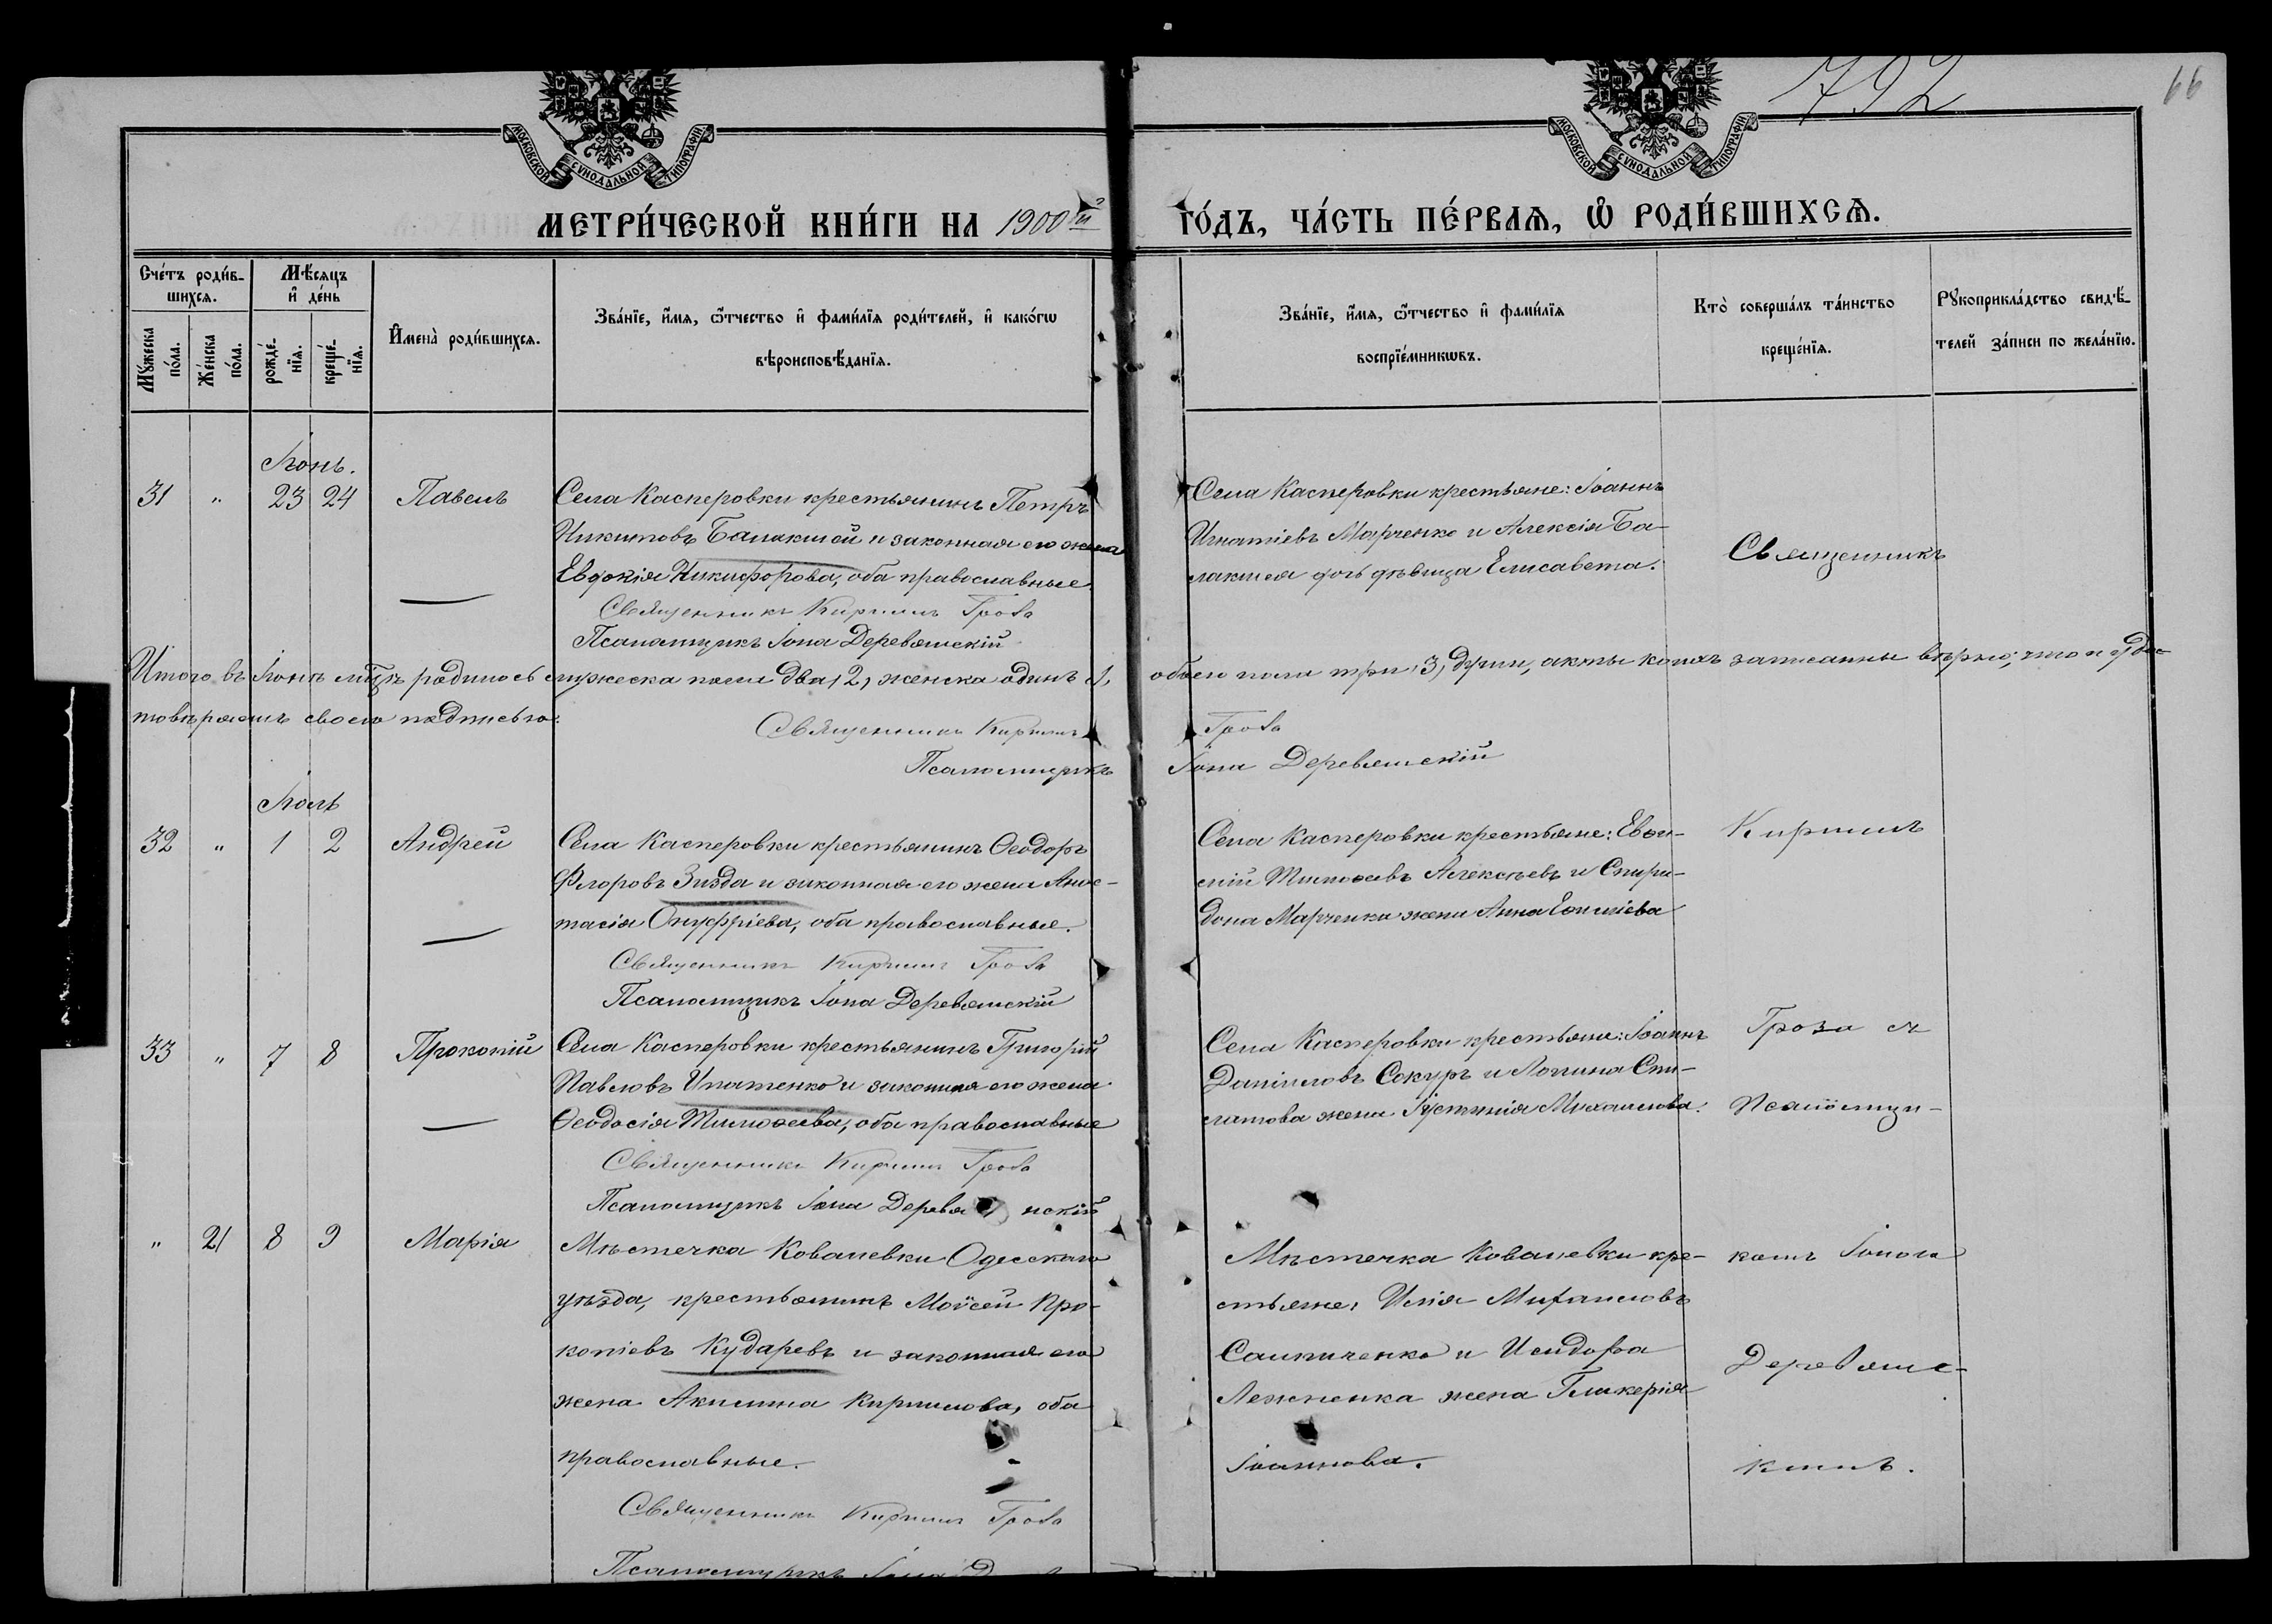 792
66
МОСКОВСКОЙ СѴНОДАЛЬНОЙ ТИПОГРАФІИ
МОСКОВСКОЙ СѴНОДАЛЬНОЙ ТИПОГРАФІИ
МЕТРИ́ЧЕСКОЙ КНИ́ГИ НА 1900й ГО́ДЪ, ЧА́СТЬ ПЕ́РВАЯ, Ѡ РОДИ́ВШИХСѦ.
Сче́тъ роди́в-
шихсѧ.
Мꙋ́жеска по́ла.
Же́нска по́ла.
Мѣ́сѧцъ
и҆ де́нь
рожде́-
нїѧ.
креще́-
нїѧ.
И҆мена̀ роди́вшихсѧ.
Зва́нїе, и҆́мѧ, ѻ҆́тчество и҆ фами́лїѧ роди́телей, и҆ како́гѡ
вѣроисповѣ́данїѧ.
Зва́нїе, и҆́мѧ, ѻ҆́тчество и҆ фами́лїѧ
воспрїе́мникѡвъ.
Кто̀ соверша́лъ та́инство
креще́нїѧ.
Рꙋкоприкла́дство свидѣ́-
телей за́писи по жела́нїю.
Іюнь.
31 " 23 24 Павелъ
Села Касперовки крестьянинъ Петръ
Никитовъ Балакшей и законная его жена
Евдокія Никифорова, оба православные.
Священникъ Кириллъ Гроза
Псаломщикъ Іона Деревянскій
Села Касперовки крестьяне: Іоаннъ
Игнатіевъ Марченко и Алексія Ба-
лакшея дочь дѣвица Елисавета.
Священникъ
Итого въ Іюнѣ мцѣ родилось мужеска пола два, 2, женска одинъ, 1, обоего пола три, 3, души, акты коихъ записанны вѣрно, что и удос-
товѣряемъ своею подписью.
Священникъ Кириллъ Гроза
Псаломщикъ Іона Деревянскій
Іюль
32 " 1 2 Андрей
Села Касперовки крестьянинъ Ѳеодоръ
Флоровъ Зизда и законная его жена Анас-
тасія Онуфріева, оба православные.
Священникъ Кириллъ Гроза
Псаломщикъ Іона Деревянскій
Села Касперовки крестьяне: Евѳи-
мій Тимоѳеевъ Алексѣевъ и Спири-
дона Марченка жена Анна
Кириллъ
33 " 7 8 Прокопій
Села Касперовки крестьянинъ Григорій
Павловъ Ипатенко и законная его жена
Ѳеодосія Тимоѳеева, оба православные
Священникъ Кириллъ Гроза
Псаломщикъ Іона Деревянскій
Села Касперовки крестьяне: Іоаннъ
Даніиловъ Сокуръ и
жена Іустинія Михаилова.
Гроза съ
Псаломщи-
" 21 8 9 Марія
Мѣстечка Ковалевки Одесскаго
уѣзда, крестьянинъ Моѵсей Про-
копіевъ Кударевъ и законная его
жена Акилина Кириллова, оба
православные.
Священникъ Кириллъ Гроза
Псаломщикъ Іона
Мѣстечка Ковалевки кре-
стьяне: Илія Михаиловъ
и Исидора
жена Гликерія
Іоаннова.
комъ Іоною
Деревянс-
кимъ.